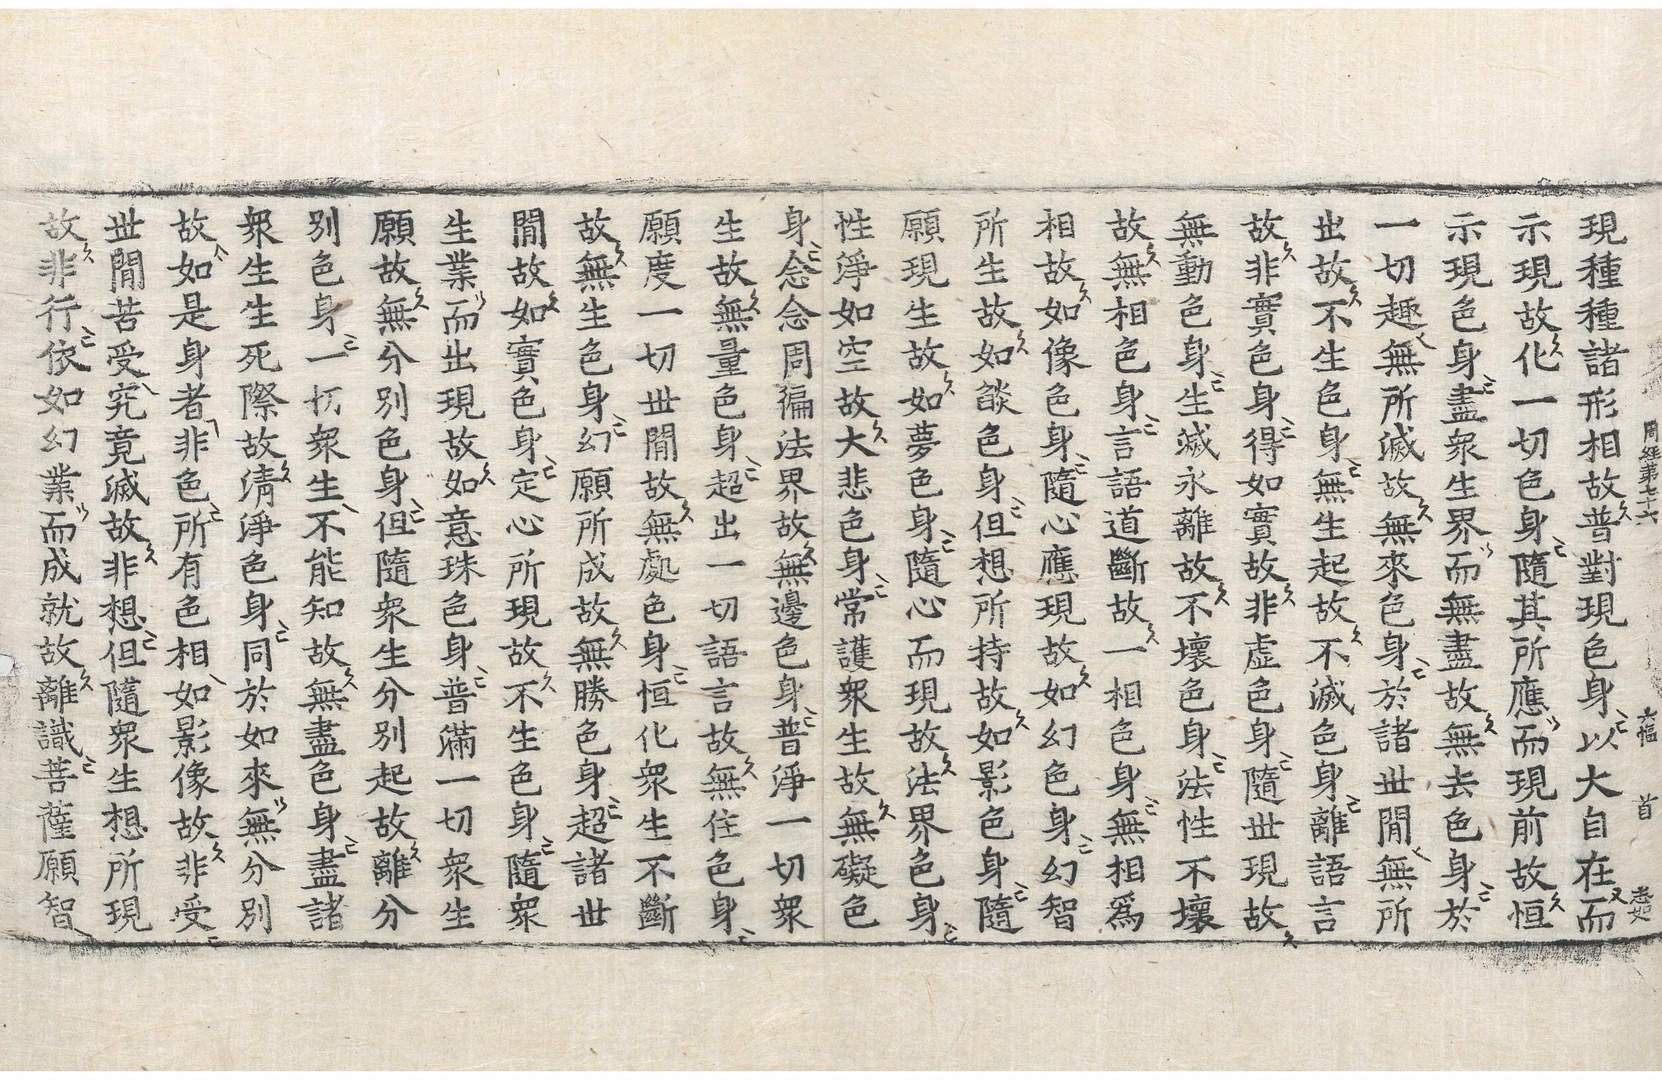 周經第七十六 六幅 首
現種種諸形相故普對現色身以大自在而
示現故化一切色身隨其所應而現前故恒
示現色身盡衆生界而無盡故無去色身於
一切趣無所滅故無來色身於諸世閒無所
出故不生色身無生起故不滅色身離語言
故非實色身得如實故非虛色身隨世現故
無動色身生滅永離故不壞色身法性不壞
故無相色身言語道斷故一相色身無相爲
相故如像色身隨心應現故如幻色身幻智
所生故如燄色身但想所持故如影色身隨
願現生故如夢色身隨心而現故法界色身
性淨如空故大悲色身常護衆生故無礙色
身念念周徧法界故無邊色身普淨一切衆
生故無量色身超出一切語言故無住色身
願度一切世閒故無處色身恒化衆生不斷
故無生色身幻願所成故無勝色身超諸世
閒故如實色身定心所現故不生色身隨衆
生業而出現故如意珠色身普滿一切衆生
願故無分別色身但隨衆生分別起故離分
別色身一切衆生不能知故無盡色身盡諸
衆生生死際故清淨色身同於如來無分別
故如是身者非色所有色相如影像故非受
世閒苦受究竟滅故非想但隨衆生想所現
故非行依如幻業而成就故離識菩薩願智